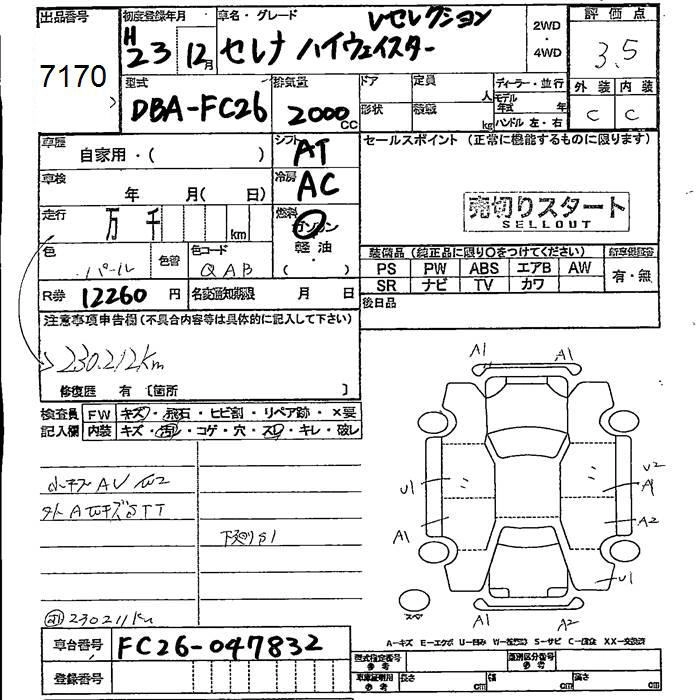 出品番号 初度登録年月 車名・グレード Vセレクション 2WD・4WD 評価点
7170 H23 12月 セレナ ハイウェイスター 3.5
型式 排気量 ドア 定員 人 ディーラー・並行 外装 内装
DBA-FC26 2000cc 形状 積載 kg モデル年式 年 ハンドル 左・右 C C
車歴 自家用・( ) シフト AT セールスポイント (正常に機能するものに限ります)
車検 年 月( 日) 冷房 AC
売切りスタート
SELLOUT
走行 万 千 km 燃料 ガソリン
軽油
( )
色 パール 色替 色コード QAB
装備品 (純正品に限り○をつけてください) 新車保証書
PS PW ABS エアB AW 有・無
SR ナビ TV カワ
R券 12260円 名変通知期限 月 日 後日品
注意事項申告欄(不具合内容等は具体的に記入して下さい)
230.212km
修復歴 有 〔箇所 〕
検査員 FW キズ・飛石・ヒビ割・リペア跡・×要
記入欄 内装 キズ・汚レ・コゲ・穴・スレ・キレ・破レ
小キズAU
下廻りS1
230211km
A1 A1
U1 U2
A1
A1 A2
U1
スペ
A1 A2
A-キズ E-エクボ U-凹み W-波 S-サビ C-腐食 XX-交換済
車台番号 FC26-047832
登録番号
型式指定番号 参考 類別区分番号 参考
車庫証明用 参考 長さ cm 幅 cm 高さ cm